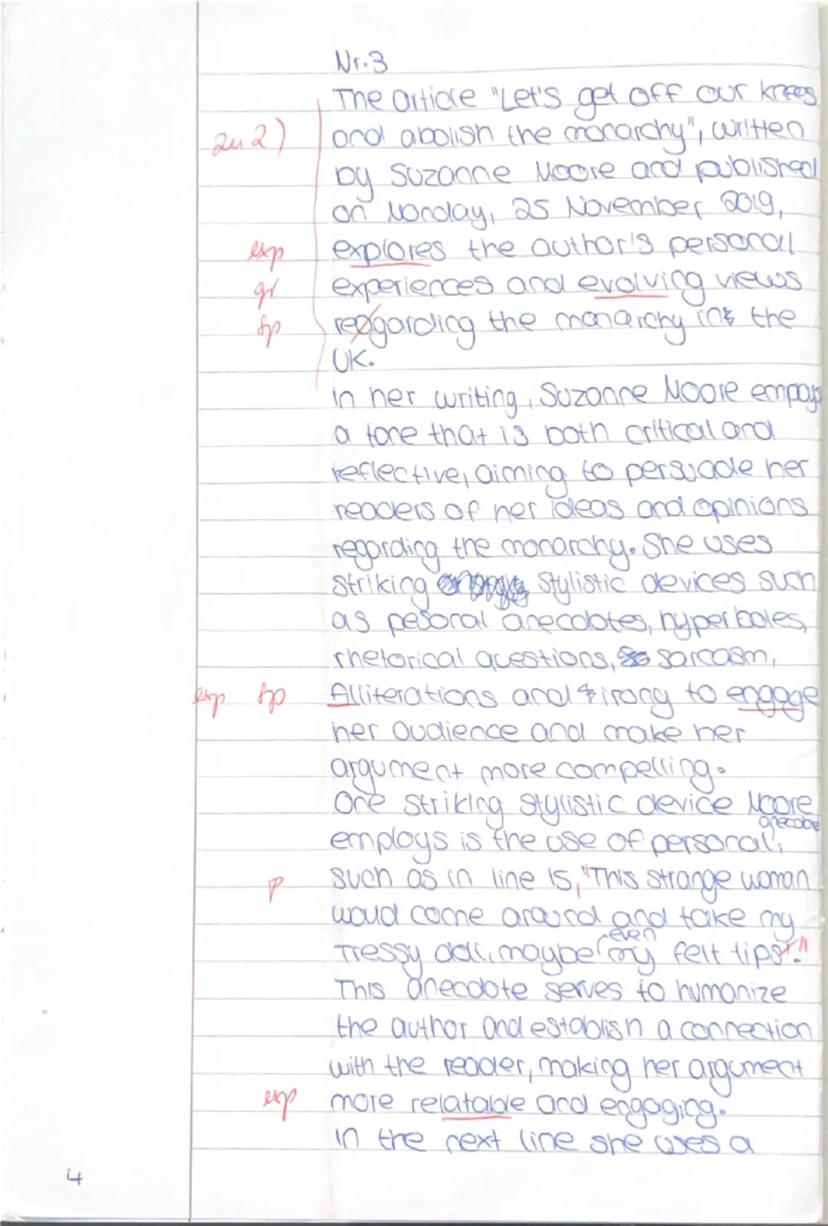 Nr.3
The article "Let's get off our knees
zu 2) and abolish the monarchy", written
by Suzanne Moore and published
on Monday, 25 November 2019,
exp explores the author's personal
gr experiences and evolving views
sp regarding the monarchy in the
UK.
In her writing, Suzanne Moore empoys
a tone that is both critical and
reflective, aiming to persuade her
readers of her ideas and opinions
regarding the monarchy. She uses
striking stylistic devices such
as pesonal anecdotes, hyperboles,
rhetorical questions, sarcasm,
exp sp Alliterations and irony to engage
her audience and make her
argument more compelling.
One striking stylistic device Moore
employs is the use of personal anecdote,
P such as in line 15, "This strange woman
would come around and take my
Tressy doll, maybe even my felt tips."
This anecdote serves to humanize
the author and establish a connection
with the reader, making her argument
exp more relatable and engaging.
In the next line she uses a
4